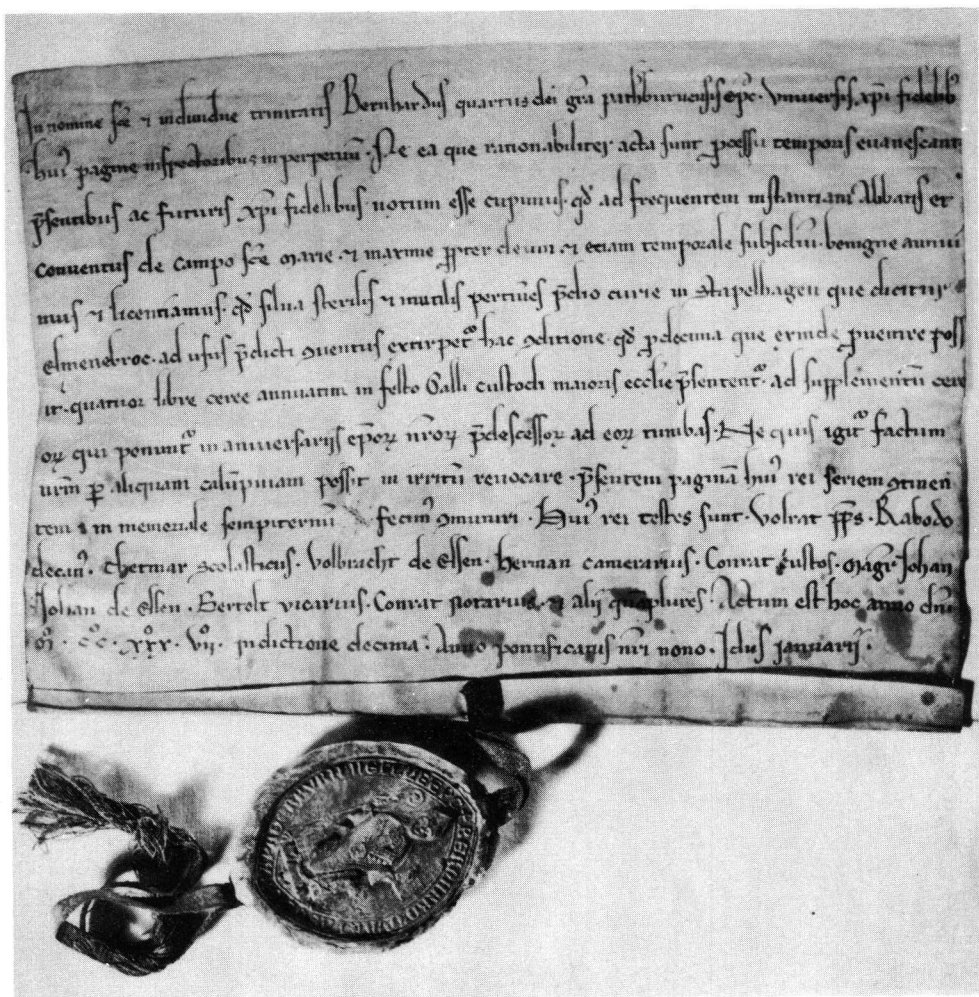 In nomine sce ⁊ indiuidue trinitatis Bernhardus quartus dei gra pathburnensis epc. Vniuersis xpi fidelib
hui᷒ pagine inspectoribus inperpetuū. Ne ea que rationabiliter acta sunt ꝓcessu temporis euanescant
p̄sentibus ac futuris xpi fidelibus notum esse cupimus. qd̄ ad frequentem instantiam Abbatis et
Conuentus de campo sce Marie. ⁊ maxime ꝓpter deum ⁊ etiam temporale subsidiū. benigne annui
mus ⁊ licentiamus. qd̄ silua sterilis ⁊ inutilis pertinēs p̄dio curie in Stapelhagen que dicitur
elmenebroc. ad usus p̄dicti ꝯuentus extirpet᷑ hac ꝯditione. qd̄ ꝓ decima que exinde ꝓuenire poss
it. quatuor libre cere annuatim in festo Galli custodi maioris ecclie p̄sentent᷑. ad supplementū cere
oꝝ qui ponunt᷑ in aniuersariis epōꝝ nr̄oꝝ p̄decessoꝝ ad eoꝝ tumbas. Ne quis igit᷑ factum
nr̄m ꝑ aliquam calūpniam possit in irritū reuocare. p̄sentem paginā hui᷒ rei seriem ꝯtinen
tem in memoriale sempiternū fecim᷒ ꝯmuniri. Hui᷒ rei testes sunt. Volrat pp̄s. Rabodo
decan᷒. Thetmar Scolasticus. Volbracht de Essen. Herman camerarius. Conrat Custos. Magr̄ Johan
Johan de Essen. Bertolt vicarius. Conrat Notarius. ⁊ alij quāplures. Actum est hoc anno dn̄i
Mº. CCº. XXXº. VIIº. indictione decima. Anno pontificatus nr̄i nono. Idus januarij.